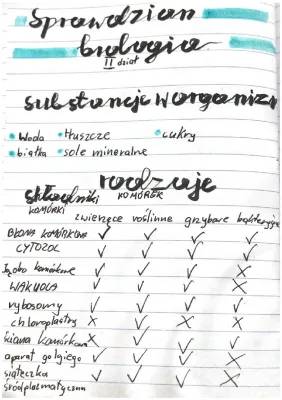 Sprawdzian
biologia
II dział
substancje w organizm
• woda • tłuszcze • cukry
• białka • sole mineralne
rodzaje
składniki KOMÓREK
KOMÓRKI zwierzęce roślinne grzybowe bakteryjne
BŁONA KOMÓRKOWA ✓ ✓ ✓ ✓
CYTOZOL ✓ ✓ ✓ ✓
Jądro komórkowe ✓ ✓ ✓ X
WAKUOLA ✓ ✓ ✓ X
rybosomy ✓ ✓ ✓ ✓
chloroplastry X ✓ X X
ściana komórkowa X ✓ ✓ ✓
aparat golgiego ✓ ✓ ✓ X
siateczka ✓ ✓ ✓ X
śródplazmatyczna